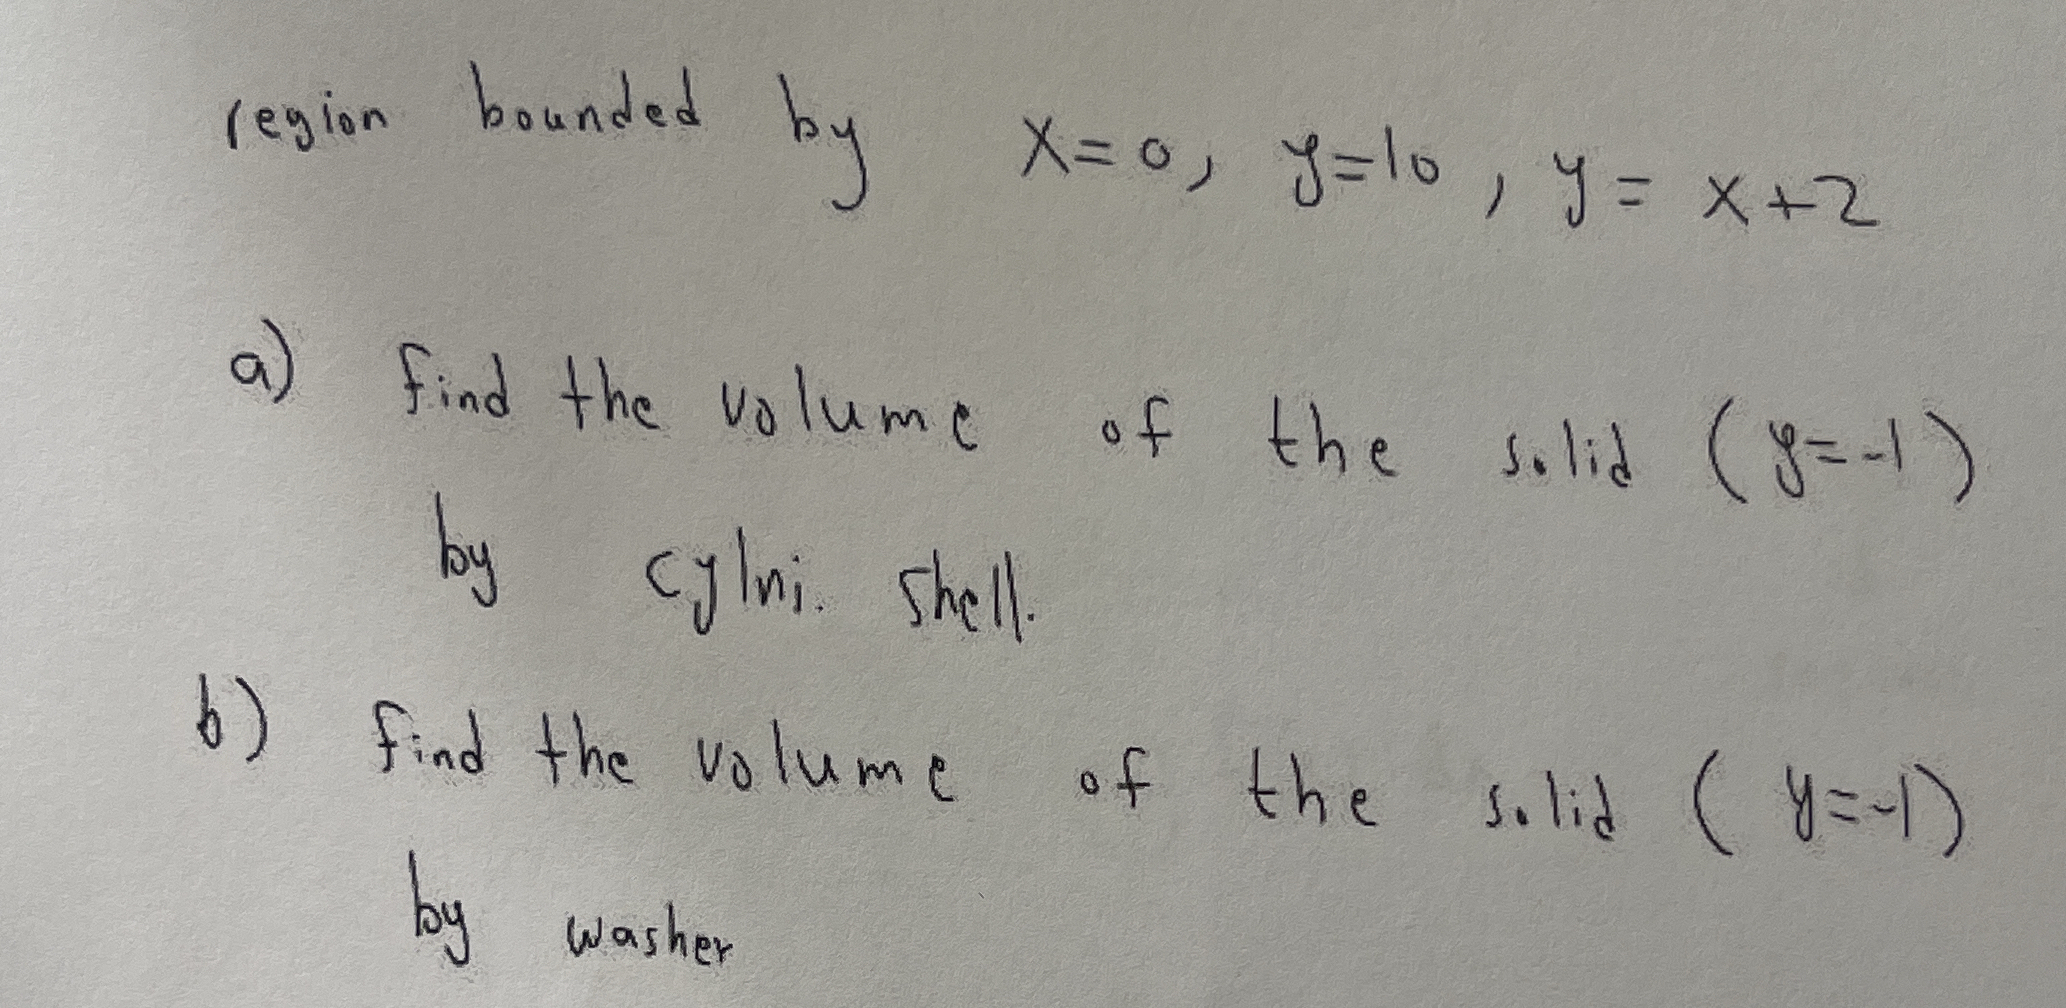 region bounded by x=0, y=10, y=x+2
a) find the volume of the solid (y=-1)
by cylni. shell.
b) find the volume of the solid (y=-1)
by washer